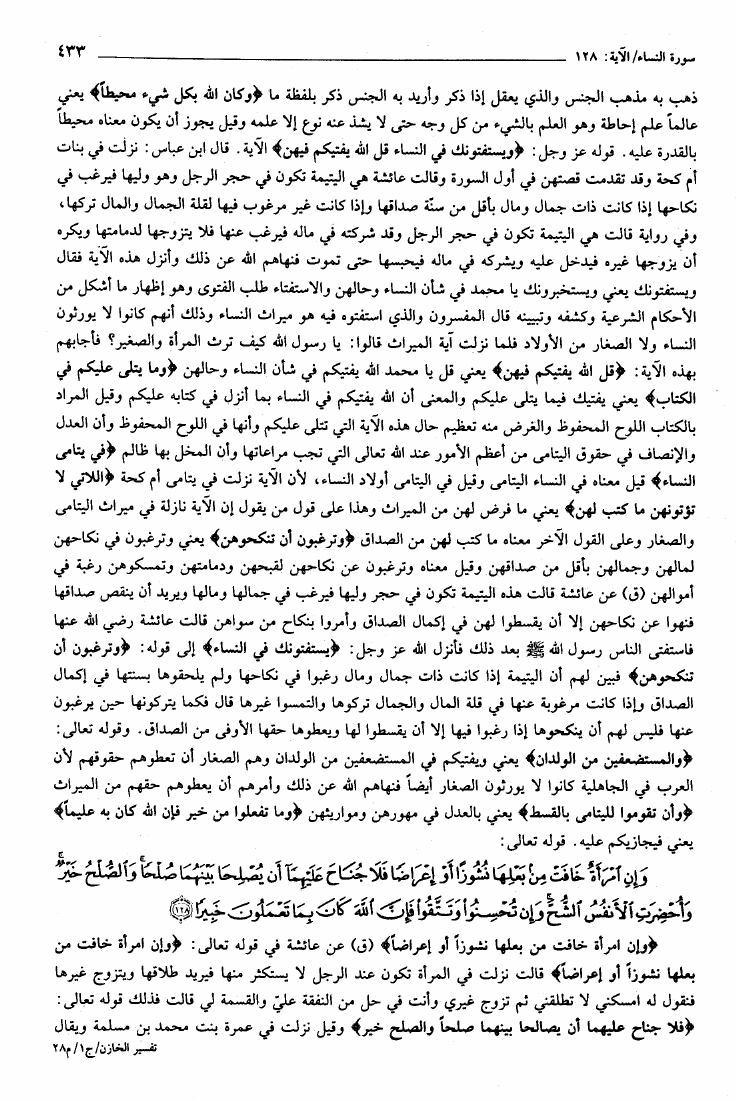 سورة النساء/الآية: ١٢٨ ٤٣٣
ذهب به مذهب الجنس والذي يعقل إذا ذكر وأريد به الجنس ذكر بلفظة ما ﴿وكان الله بكل شيء محيطاً﴾ يعني
عالماً علم إحاطة وهو العلم بالشيء من كل وجه حتى لا يشذ عنه نوع إلا علمه وقيل يجوز أن يكون معناه محيطاً
بالقدرة عليه. قوله عز وجل: ﴿ويستفتونك في النساء قل الله يفتيكم فيهن﴾ الآية. قال ابن عباس: نزلت في بنات
أم كحة وقد تقدمت قصتهن في أول السورة وقالت عائشة هي اليتيمة تكون في حجر الرجل وهو وليها فيرغب في
نكاحها إذا كانت ذات جمال ومال بأقل من سنّة صداقها وإذا كانت غير مرغوب فيها لقلة الجمال والمال تركها،
وفي رواية قالت هي اليتيمة تكون في حجر الرجل وقد شركته في ماله فيرغب عنها فلا يتزوجها لدمامتها ويكره
أن يزوجها غيره فيدخل عليه ويشركه في ماله فيحبسها حتى تموت فنهاهم الله عن ذلك وأنزل هذه الآية فقال
ويستفتونك يعني ويستخبرونك يا محمد في شأن النساء وحالهن والاستفتاء طلب الفتوى وهو إظهار ما أشكل من
الأحكام الشرعية وكشفه وتبيينه قال المفسرون والذي استفتوه فيه هو ميراث النساء وذلك أنهم كانوا لا يورثون
النساء ولا الصغار من الأولاد فلما نزلت آية الميراث قالوا: يا رسول الله كيف ترث المرأة والصغير؟ فأجابهم
بهذه الآية: ﴿قل الله يفتيكم فيهن﴾ يعني قل يا محمد الله يفتيكم في شأن النساء وحالهن ﴿وما يتلى عليكم في
الكتاب﴾ يعني يفتيك فيما يتلى عليكم والمعنى أن الله يفتيكم في النساء بما أنزل في كتابه عليكم وقيل المراد
بالكتاب اللوح المحفوظ والغرض منه تعظيم حال هذه الآية التي تتلى عليكم وأنها في اللوح المحفوظ وأن العدل
والإنصاف في حقوق اليتامى من أعظم الأمور عند الله تعالى التي تجب مراعاتها وأن المخل بها ظالم ﴿في يتامى
النساء﴾ قيل معناه في النساء اليتامى وقيل في اليتامى أولاد النساء، لأن الآية نزلت في يتامى أم كحة ﴿اللاتي لا
تؤتونهن ما كتب لهن﴾ يعني ما فرض لهن من الميراث وهذا على قول من يقول إن الآية نازلة في ميراث اليتامى
والصغار وعلى القول الآخر معناه ما كتب لهن من الصداق ﴿وترغبون أن تنكحوهن﴾ يعني وترغبون في نكاحهن
لمالهن وجمالهن بأقل من صداقهن وقيل معناه وترغبون عن نكاحهن لقبحهن ودمامتهن وتمسكوهن رغبة في
أموالهن (ق) عن عائشة قالت هذه اليتيمة تكون في حجر وليها فيرغب في جمالها ومالها ويريد أن ينقص صداقها
فنهوا عن نكاحهن إلا أن يقسطوا لهن في إكمال الصداق وأمروا بنكاح من سواهن قالت عائشة رضي الله عنها
فاستفتى الناس رسول الله ﷺ بعد ذلك فأنزل الله عز وجل: ﴿يستفتونك في النساء﴾ إلى قوله: ﴿وترغبون أن
تنكحوهن﴾ فبين لهم أن اليتيمة إذا كانت ذات جمال ومال رغبوا في نكاحها ولم يلحقوها بسنتها في إكمال
الصداق وإذا كانت مرغوبة عنها في قلة المال والجمال تركوها والتمسوا غيرها قال فكما يتركونها حين يرغبون
عنها فليس لهم أن ينكحوها إذا رغبوا فيها إلا أن يقسطوا لها ويعطوها حقها الأوفى من الصداق. وقوله تعالى:
﴿والمستضعفين من الولدان﴾ يعني ويفتيكم في المستضعفين من الولدان وهم الصغار أن تعطوهم حقوقهم لأن
العرب في الجاهلية كانوا لا يورثون الصغار أيضاً فنهاهم الله عن ذلك وأمرهم أن يعطوهم حقهم من الميراث
﴿وأن تقوموا لليتامى بالقسط﴾ يعني بالعدل في مهورهن ومواريثهن ﴿وما تفعلوا من خير فإن الله كان به عليماً﴾
يعني فيجازيكم عليه. قوله تعالى:
وَإِنِ ٱمْرَأَةٌ خَافَتْ مِنۢ بَعْلِهَا نُشُوزًا أَوْ إِعْرَاضًا فَلَا جُنَاحَ عَلَيْهِمَآ أَن يُصْلِحَا بَيْنَهُمَا صُلْحًا ۚ وَٱلصُّلْحُ خَيْرٌ ۗ
وَأُحْضِرَتِ ٱلْأَنفُسُ ٱلشُّحَّ ۚ وَإِن تُحْسِنُوا۟ وَتَتَّقُوا۟ فَإِنَّ ٱللَّهَ كَانَ بِمَا تَعْمَلُونَ خَبِيرًا ﴿١٢٨﴾
﴿وإن امرأة خافت من بعلها نشوزاً أو إعراضاً﴾ (ق) عن عائشة في قوله تعالى: ﴿وإن امرأة خافت من
بعلها نشوزاً أو إعراضاً﴾ قالت نزلت في المرأة تكون عند الرجل لا يستكثر منها فيريد طلاقها ويتزوج غيرها
فتقول له امسكني لا تطلقني ثم تزوج غيري وأنت في حل من النفقة عليّ والقسمة لي قالت فذلك قوله تعالى:
﴿فلا جناح عليهما أن يصالحا بينهما صلحاً والصلح خير﴾ وقيل نزلت في عمرة بنت محمد بن مسلمة ويقال
تفسير الخازن/ج١/م٢٨